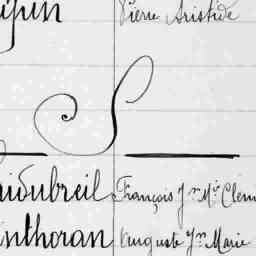 Pierre Aristide
S
aidubreil François Jn Mie Clém
nthoran Auguste Jn Marie